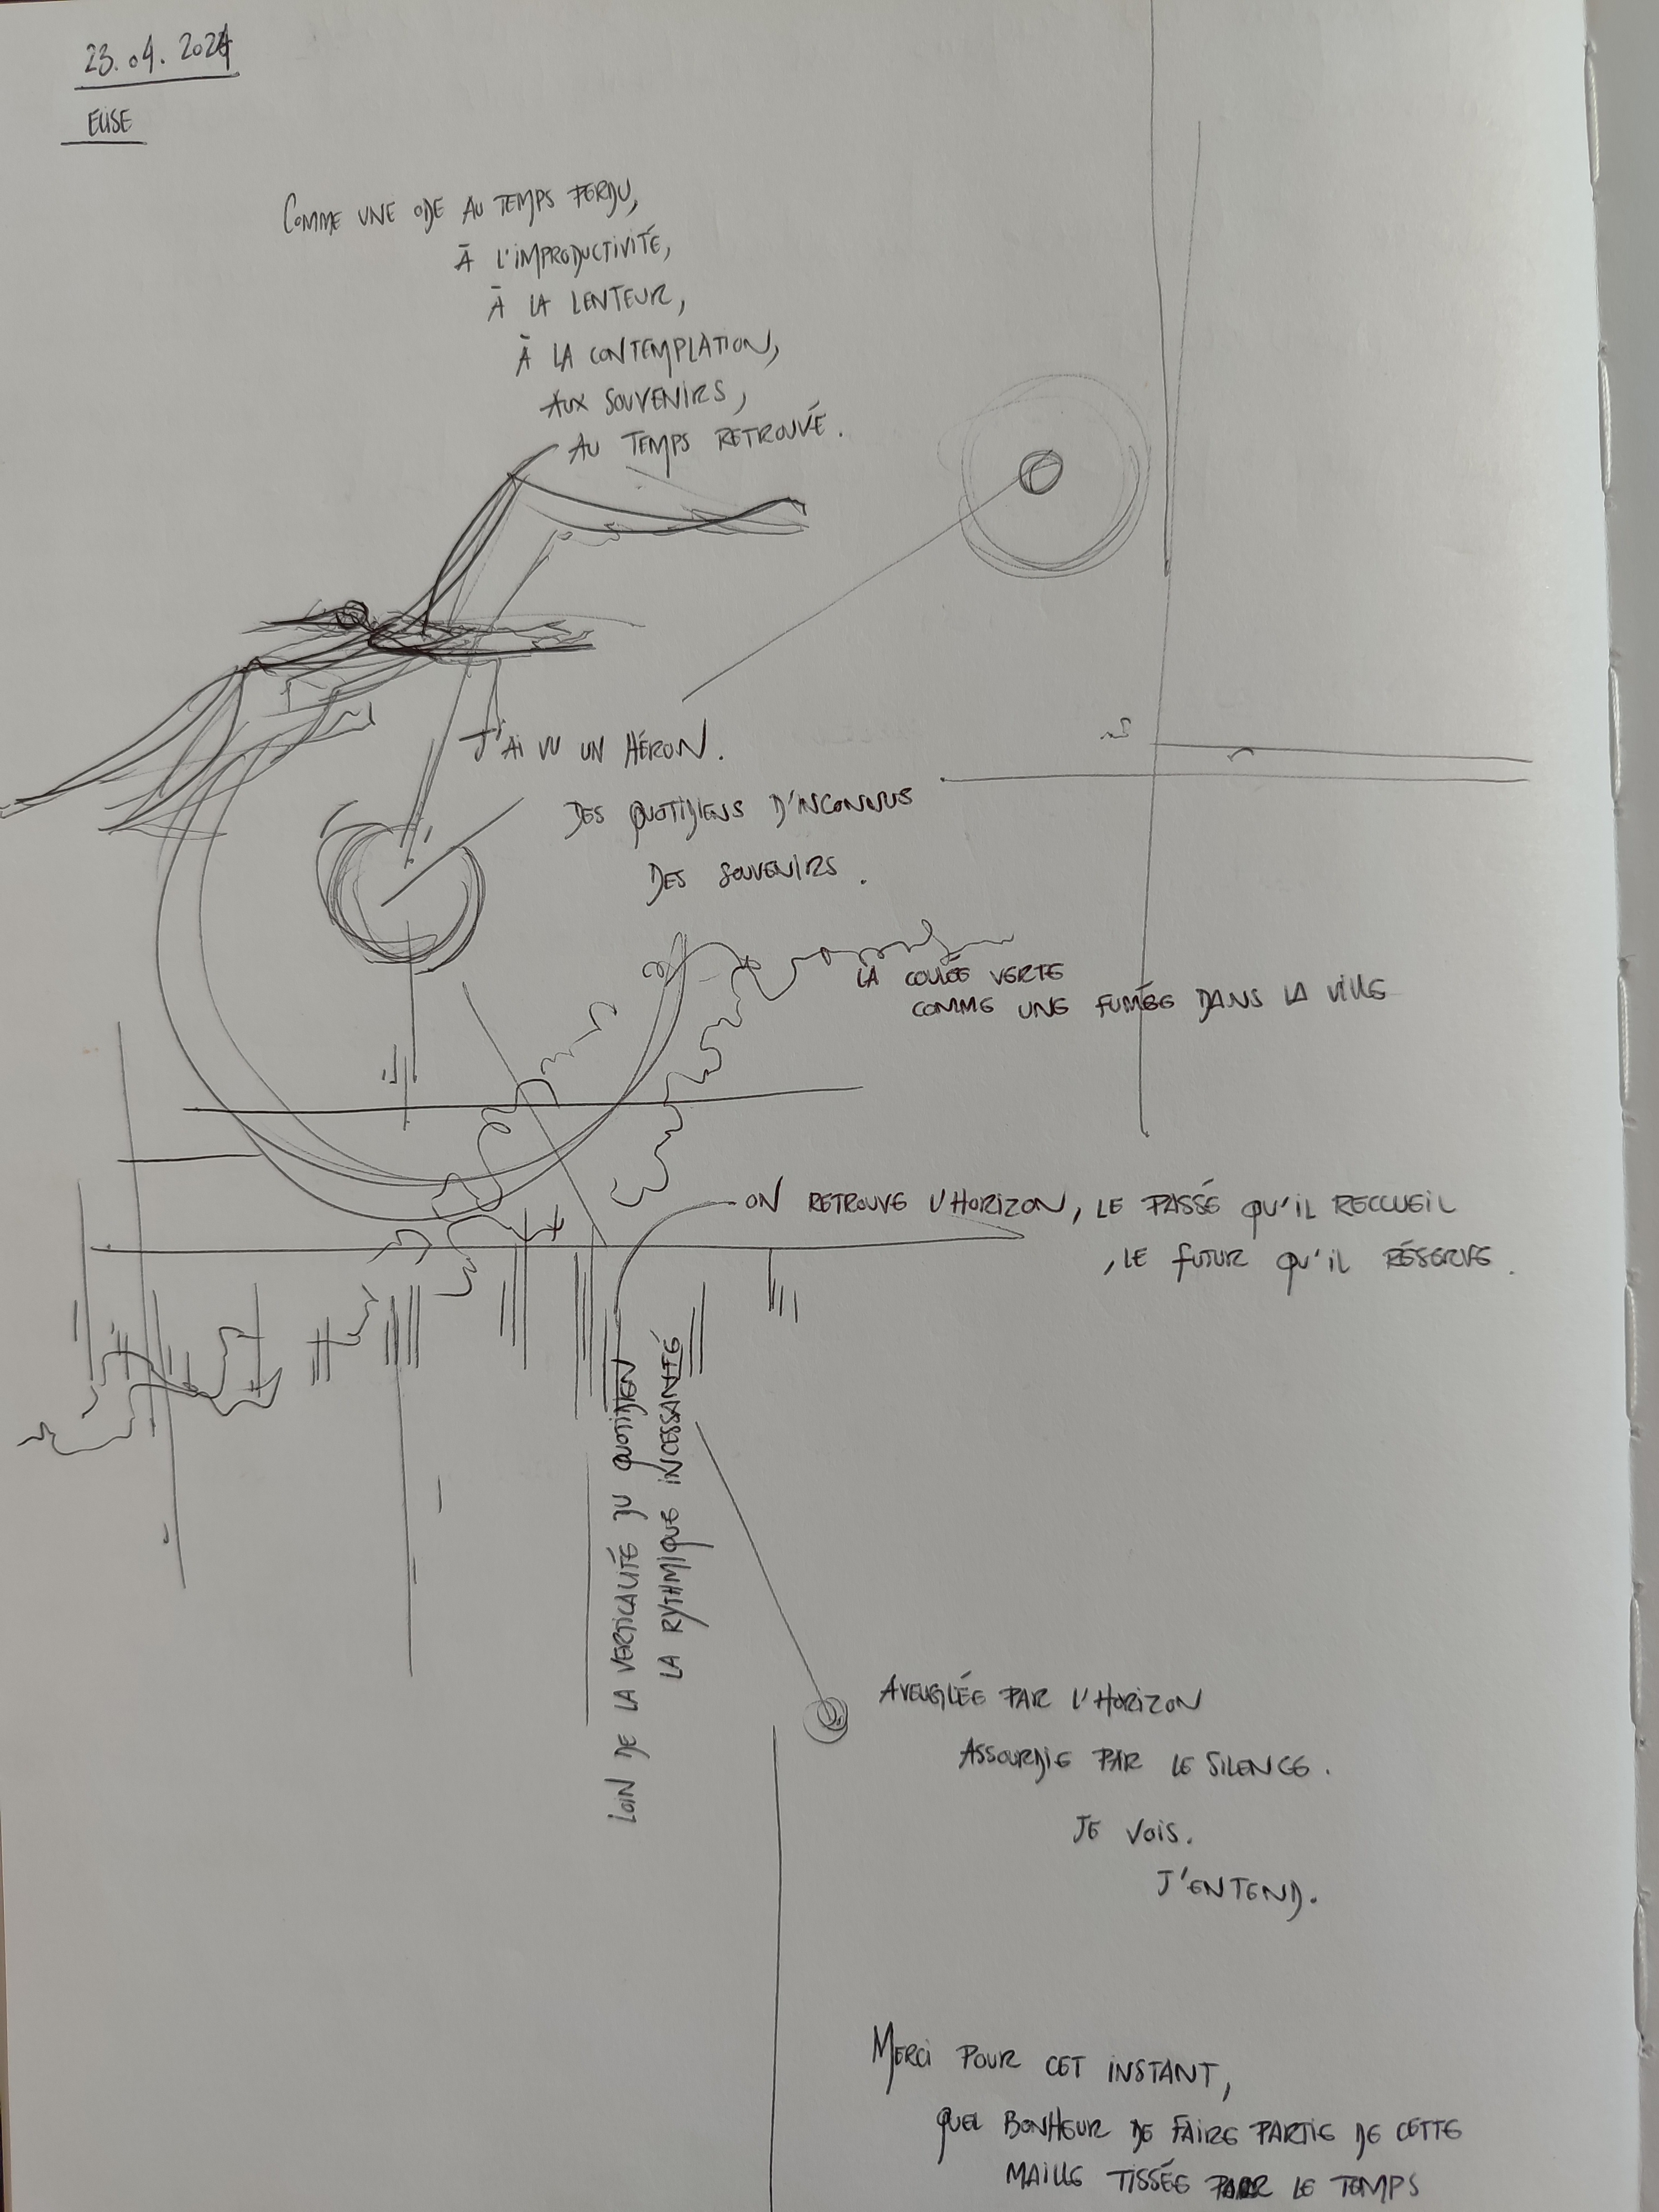 23.04.2024
ELISE
COMME UNE ODE AU TEMPS PERDU,
À L'IMPRODUCTIVITÉ,
À LA LENTEUR,
À LA CONTEMPLATION,
AUX SOUVENIRS,
AU TEMPS RETROUVÉ.
J'AI VU UN HÉRON.
DES QUOTIDIENS D'INCONNUS
DES SOUVENIRS.
LA COULÉE VERTE
COMME UNE FUMÉE DANS LA VILLE
ON RETROUVE L'HORIZON, LE PASSÉ QU'IL RECCUEIL
, LE FUTUR QU'IL RÉSERVE.
LOIN DE LA VERTICALITÉ DU QUOTIDIEN
LA RYTHMIQUE INCESSANTE
AVEUGLÉE PAR L'HORIZON
ASSOURDIE PAR LE SILENCE.
JE VOIS.
J'ENTEND.
MERCI POUR CET INSTANT,
QUEL BONHEUR DE FAIRE PARTIE DE CETTE
MAILLE TISSÉE PAR LE TEMPS